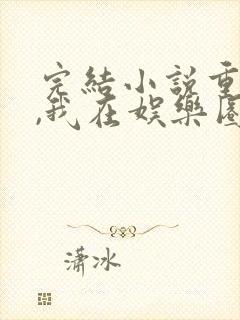 完結小说重
,我在娱樂圈
潇冰